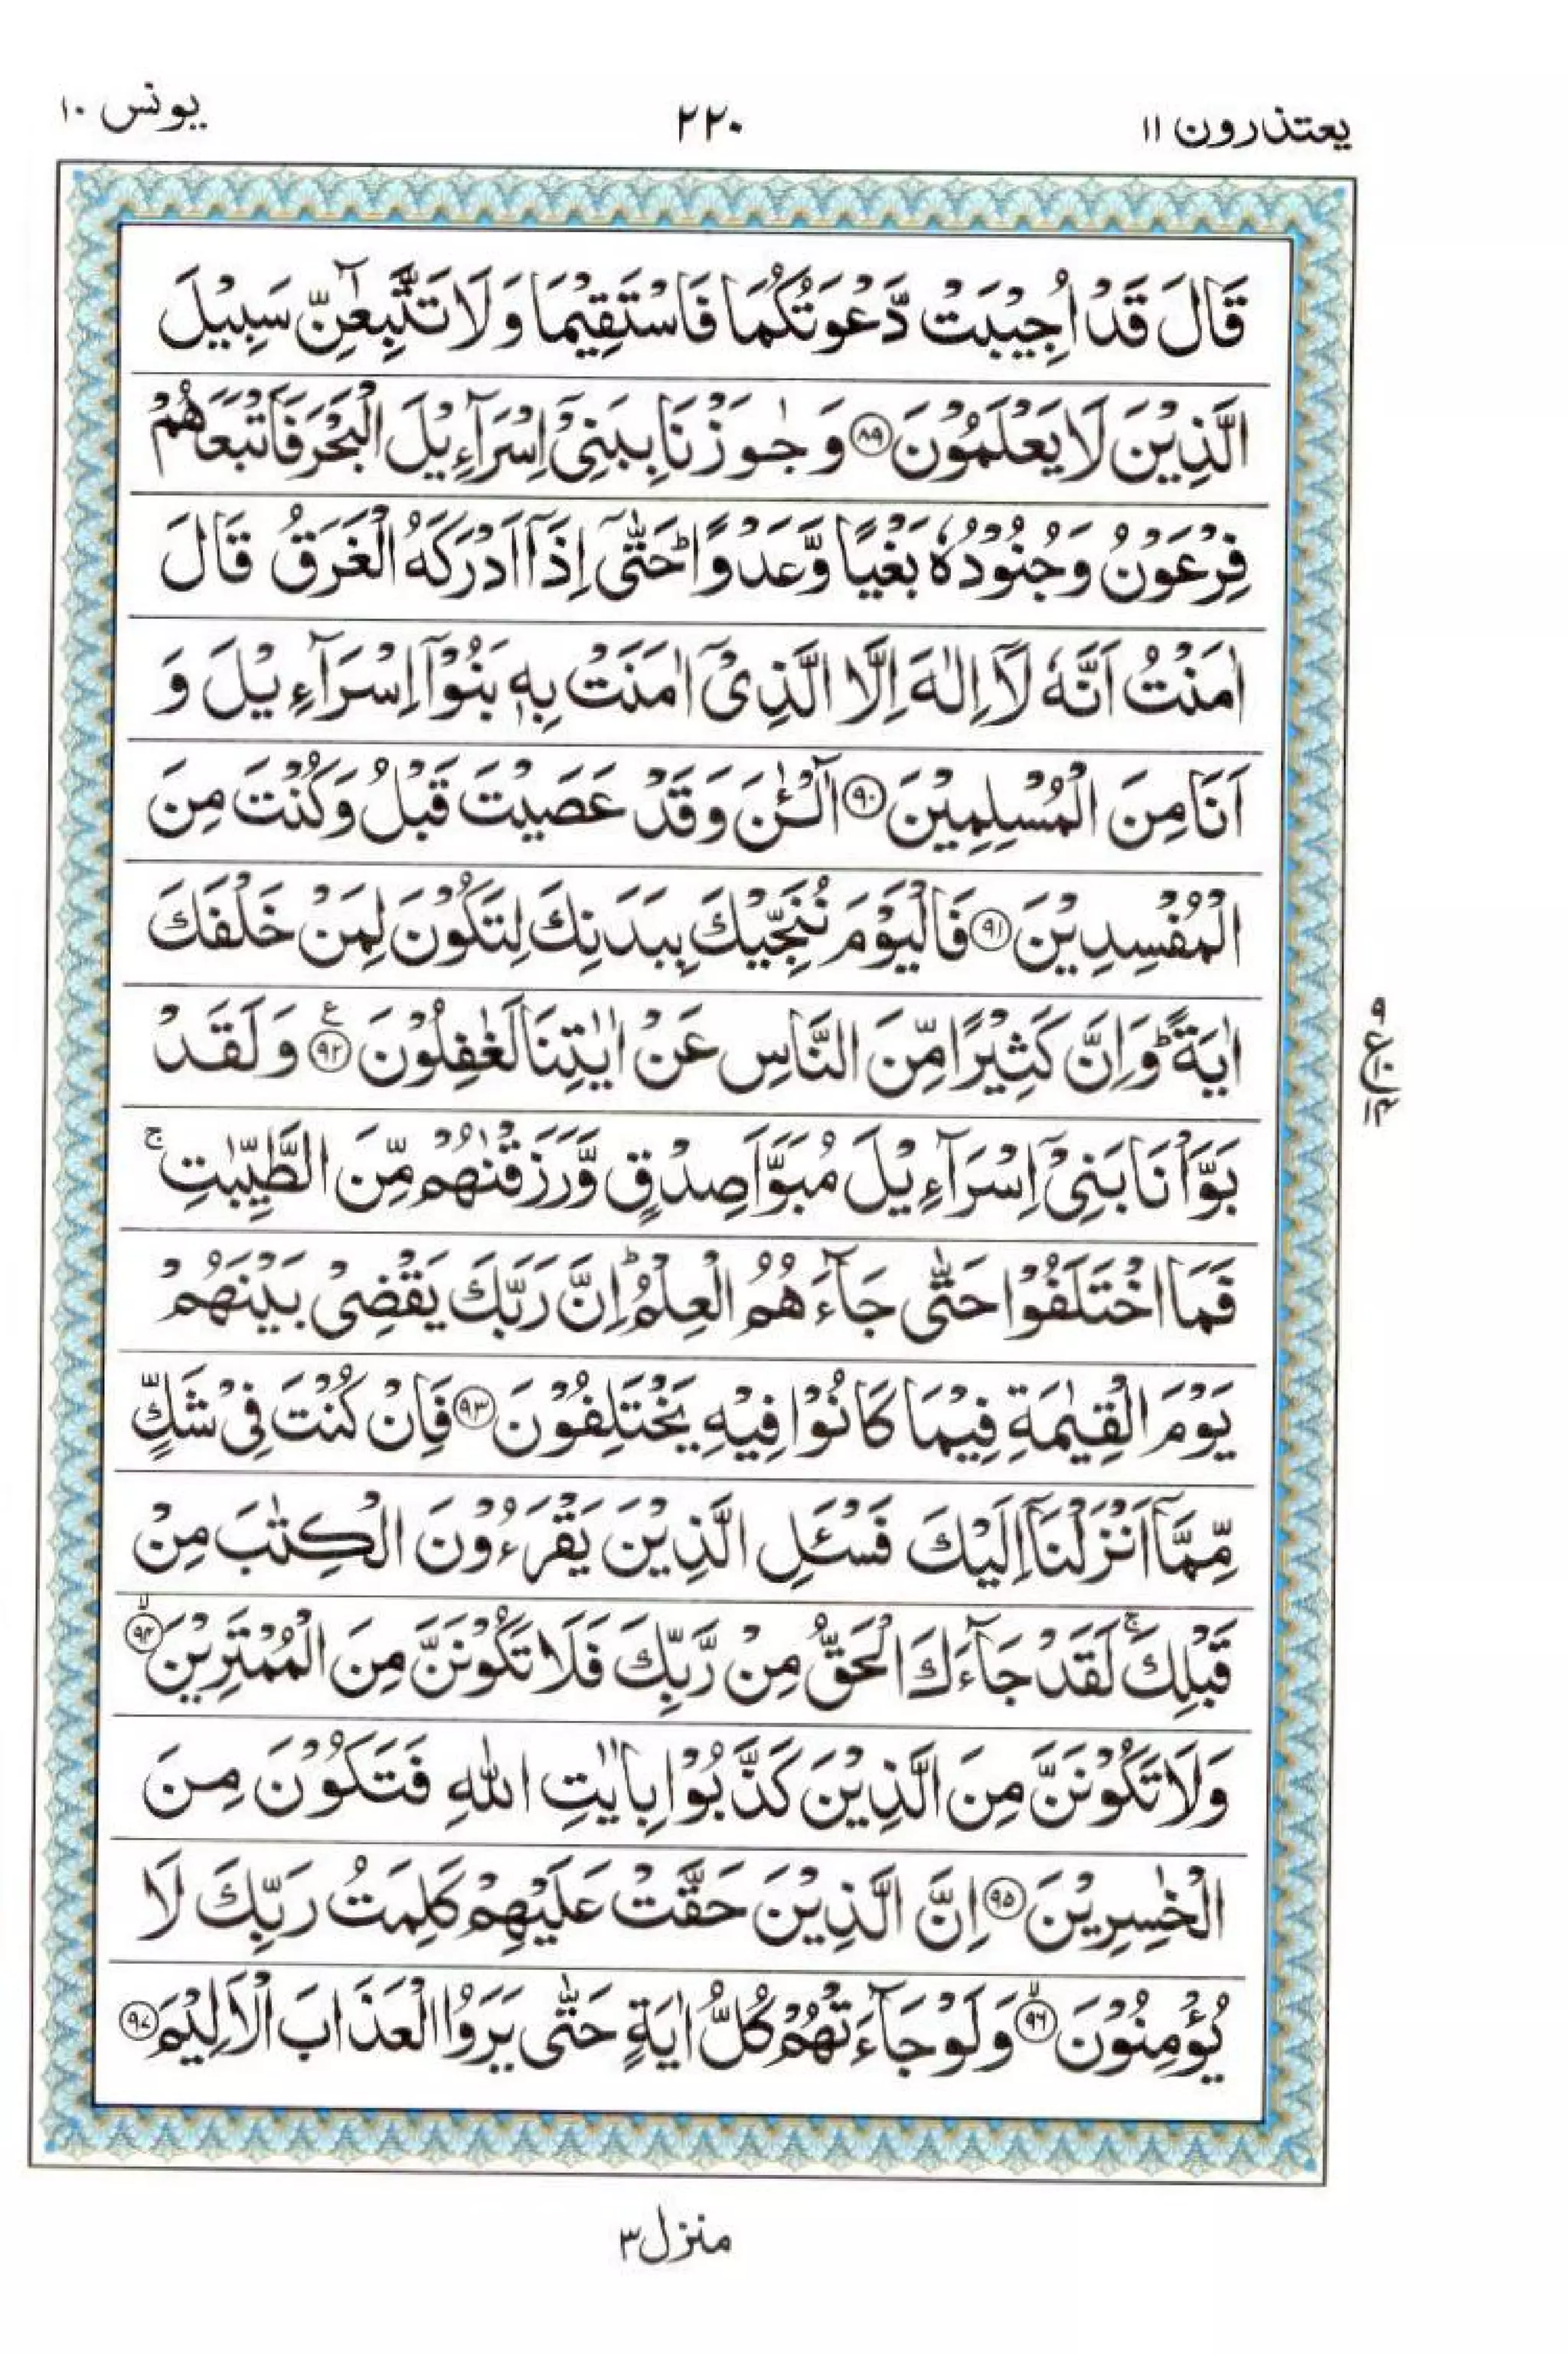 يعتذرون ١١
٢٢٠
يونس ١٠
قَالَ قَدْ اُجِيْبَتْ دَّعْوَتُكُمَا فَاسْتَقِيْمَا وَ لَا تَتَّبِعٰٓنِّ سَبِيْلَ
الَّذِيْنَ لَا يَعْلَمُوْنَ ﴿۸۹﴾ وَ جٰوَزْنَا بِبَنِيْۤ اِسْرَآءِيْلَ الْبَحْرَ فَاَتْبَعَهُمْ
فِرْعَوْنُ وَ جُنُوْدُهٗ بَغْيًا وَّ عَدْوًا ؕ حَتّٰۤى اِذَاۤ اَدْرَكَهُ الْغَرَقُ قَالَ
اٰمَنْتُ اَنَّهٗ لَاۤ اِلٰهَ اِلَّا الَّذِيْۤ اٰمَنَتْ بِهٖ بَنُوْۤا اِسْرَآءِيْلَ وَ
اَنَا مِنَ الْمُسْلِمِيْنَ ﴿۹۰﴾ آٰلْـٰٔنَ وَ قَدْ عَصَيْتَ قَبْلُ وَ كُنْتَ مِنَ
الْمُفْسِدِيْنَ ﴿۹۱﴾ فَالْيَوْمَ نُنَجِّيْكَ بِبَدَنِكَ لِتَكُوْنَ لِمَنْ خَلْفَكَ
اٰيَةً ؕ وَ اِنَّ كَثِيْرًا مِّنَ النَّاسِ عَنْ اٰيٰتِنَا لَغٰفِلُوْنَ ﴿۹۲﴾ ع وَ لَقَدْ
بَوَّاْنَا بَنِيْۤ اِسْرَآءِيْلَ مُبَوَّاَ صِدْقٍ وَّ رَزَقْنٰهُمْ مِّنَ الطَّيِّبٰتِ ۚ
فَمَا اخْتَلَفُوْا حَتّٰى جَآءَهُمُ الْعِلْمُ ؕ اِنَّ رَبَّكَ يَقْضِيْ بَيْنَهُمْ
يَوْمَ الْقِيٰمَةِ فِيْمَا كَانُوْا فِيْهِ يَخْتَلِفُوْنَ ﴿۹۳﴾ فَاِنْ كُنْتَ فِيْ شَكٍّ
مِّمَّاۤ اَنْزَلْنَاۤ اِلَيْكَ فَسْـَٔلِ الَّذِيْنَ يَقْرَءُوْنَ الْكِتٰبَ مِنْ
قَبْلِكَ ۚ لَقَدْ جَآءَكَ الْحَقُّ مِنْ رَّبِّكَ فَلَا تَكُوْنَنَّ مِنَ الْمُمْتَرِيْنَ ﴿ۙ۹۴﴾
وَ لَا تَكُوْنَنَّ مِنَ الَّذِيْنَ كَذَّبُوْا بِاٰيٰتِ اللّٰهِ فَتَكُوْنَ مِنَ
الْخٰسِرِيْنَ ﴿۹۵﴾ اِنَّ الَّذِيْنَ حَقَّتْ عَلَيْهِمْ كَلِمَتُ رَبِّكَ لَا
يُؤْمِنُوْنَ ﴿ۙ۹۶﴾ وَ لَوْ جَآءَتْهُمْ كُلُّ اٰيَةٍ حَتّٰى يَرَوُا الْعَذَابَ الْاَلِيْمَ ﴿۹۷﴾
۹
ع۱۰
۱۴
منزل ۳